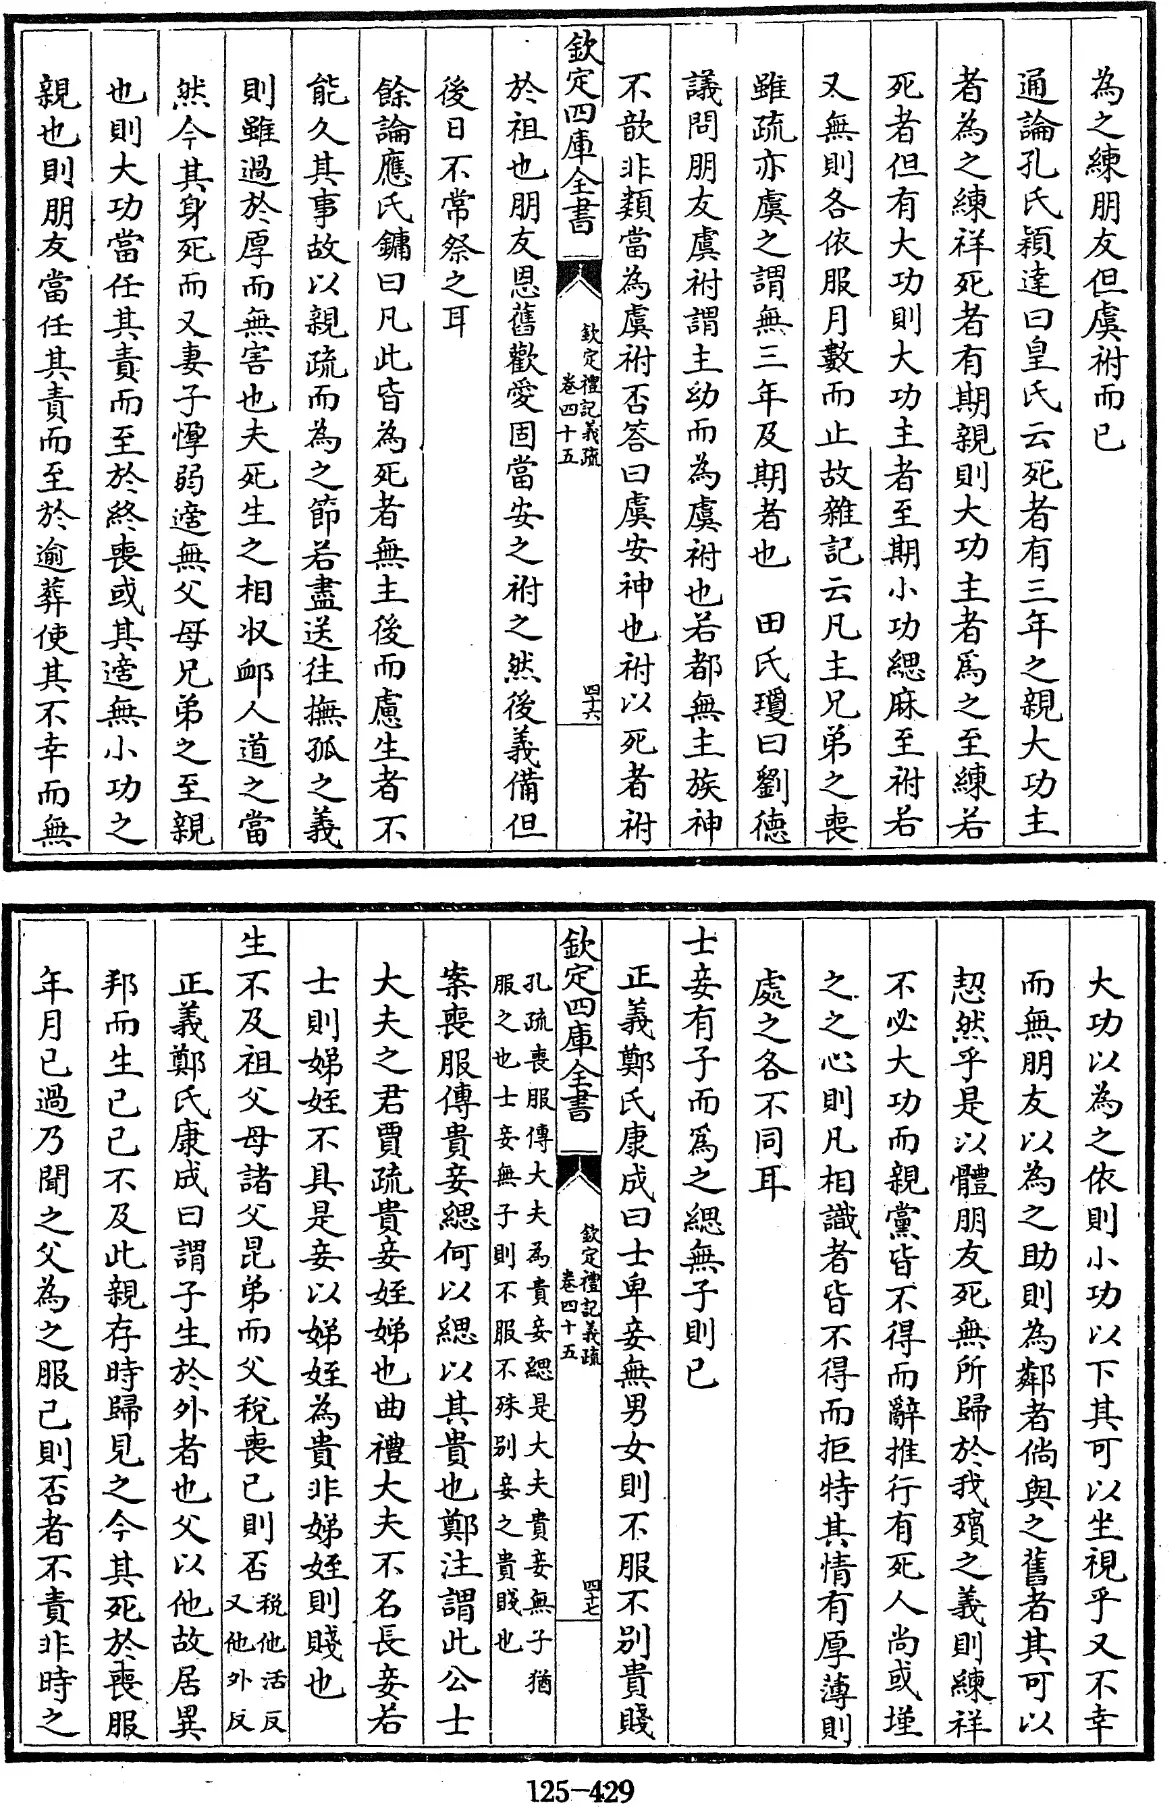 為之練朋友但虞祔而已
通論孔氏穎達曰皇氏云死者有三年之親大功主
者為之練祥死者有期親則大功主者爲之至練若
死者但有大功則大功主者至期小功緦麻至祔若
又無則各依服月數而止故雜記云凡主兄弟之喪
雖疏亦虞之謂無三年及期者也　田氏瓊曰劉德
議問朋友虞祔謂主幼而為虞祔也若都無主族神
不歆非類當為虞祔否答曰虞安神也祔以死者祔
欽定四庫全書
欽定禮記義疏
卷四十五
四十六
於祖也朋友恩舊歡愛固當安之祔之然後義備但
後日不常祭之耳
餘論應氏鏞曰凡此皆為死者無主後而慮生者不
能久其事故以親疏而為之節若盡送往撫孤之義
則雖過於厚而無害也夫死生之相收卹人道之當
然今其身死而又妻子惸弱適無父母兄弟之至親
也則大功當任其責而至於終喪或其適無小功之
親也則朋友當任其責而至於逾葬使其不幸而無
大功以為之依則小功以下其可以坐視乎又不幸
而無朋友以為之助則為鄰者倘與之舊者其可以
恝然乎是以體朋友死無所歸於我殯之義則練祥
不必大功而親黨皆不得而辭推行有死人尚或墐
之之心則凡相識者皆不得而拒特其情有厚薄則
處之各不同耳
士妾有子而爲之緦無子則已
正義鄭氏康成曰士卑妾無男女則不服不別貴賤
欽定四庫全書
欽定禮記義疏
卷四十五
四十七
孔疏喪服傳大夫爲貴妾緦是大夫貴妾無子猶
服之也士妾無子則不服不殊別妾之貴賤也
案喪服傳貴妾緦何以緦以其貴也鄭注謂此公士
大夫之君賈疏貴妾姪娣也曲禮大夫不名長妾若
士則娣姪不具是妾以娣姪為貴非娣姪則賤也
生不及祖父母諸父昆弟而父稅喪己則否稅他活反
又他外反
正義鄭氏康成曰謂子生於外者也父以他故居異
邦而生己己不及此親存時歸見之今其死於喪服
年月已過乃聞之父為之服己則否者不責非時之
125-429